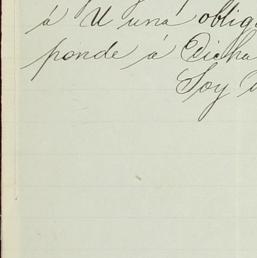 á U una oblig
ponde á Dicha
Soy